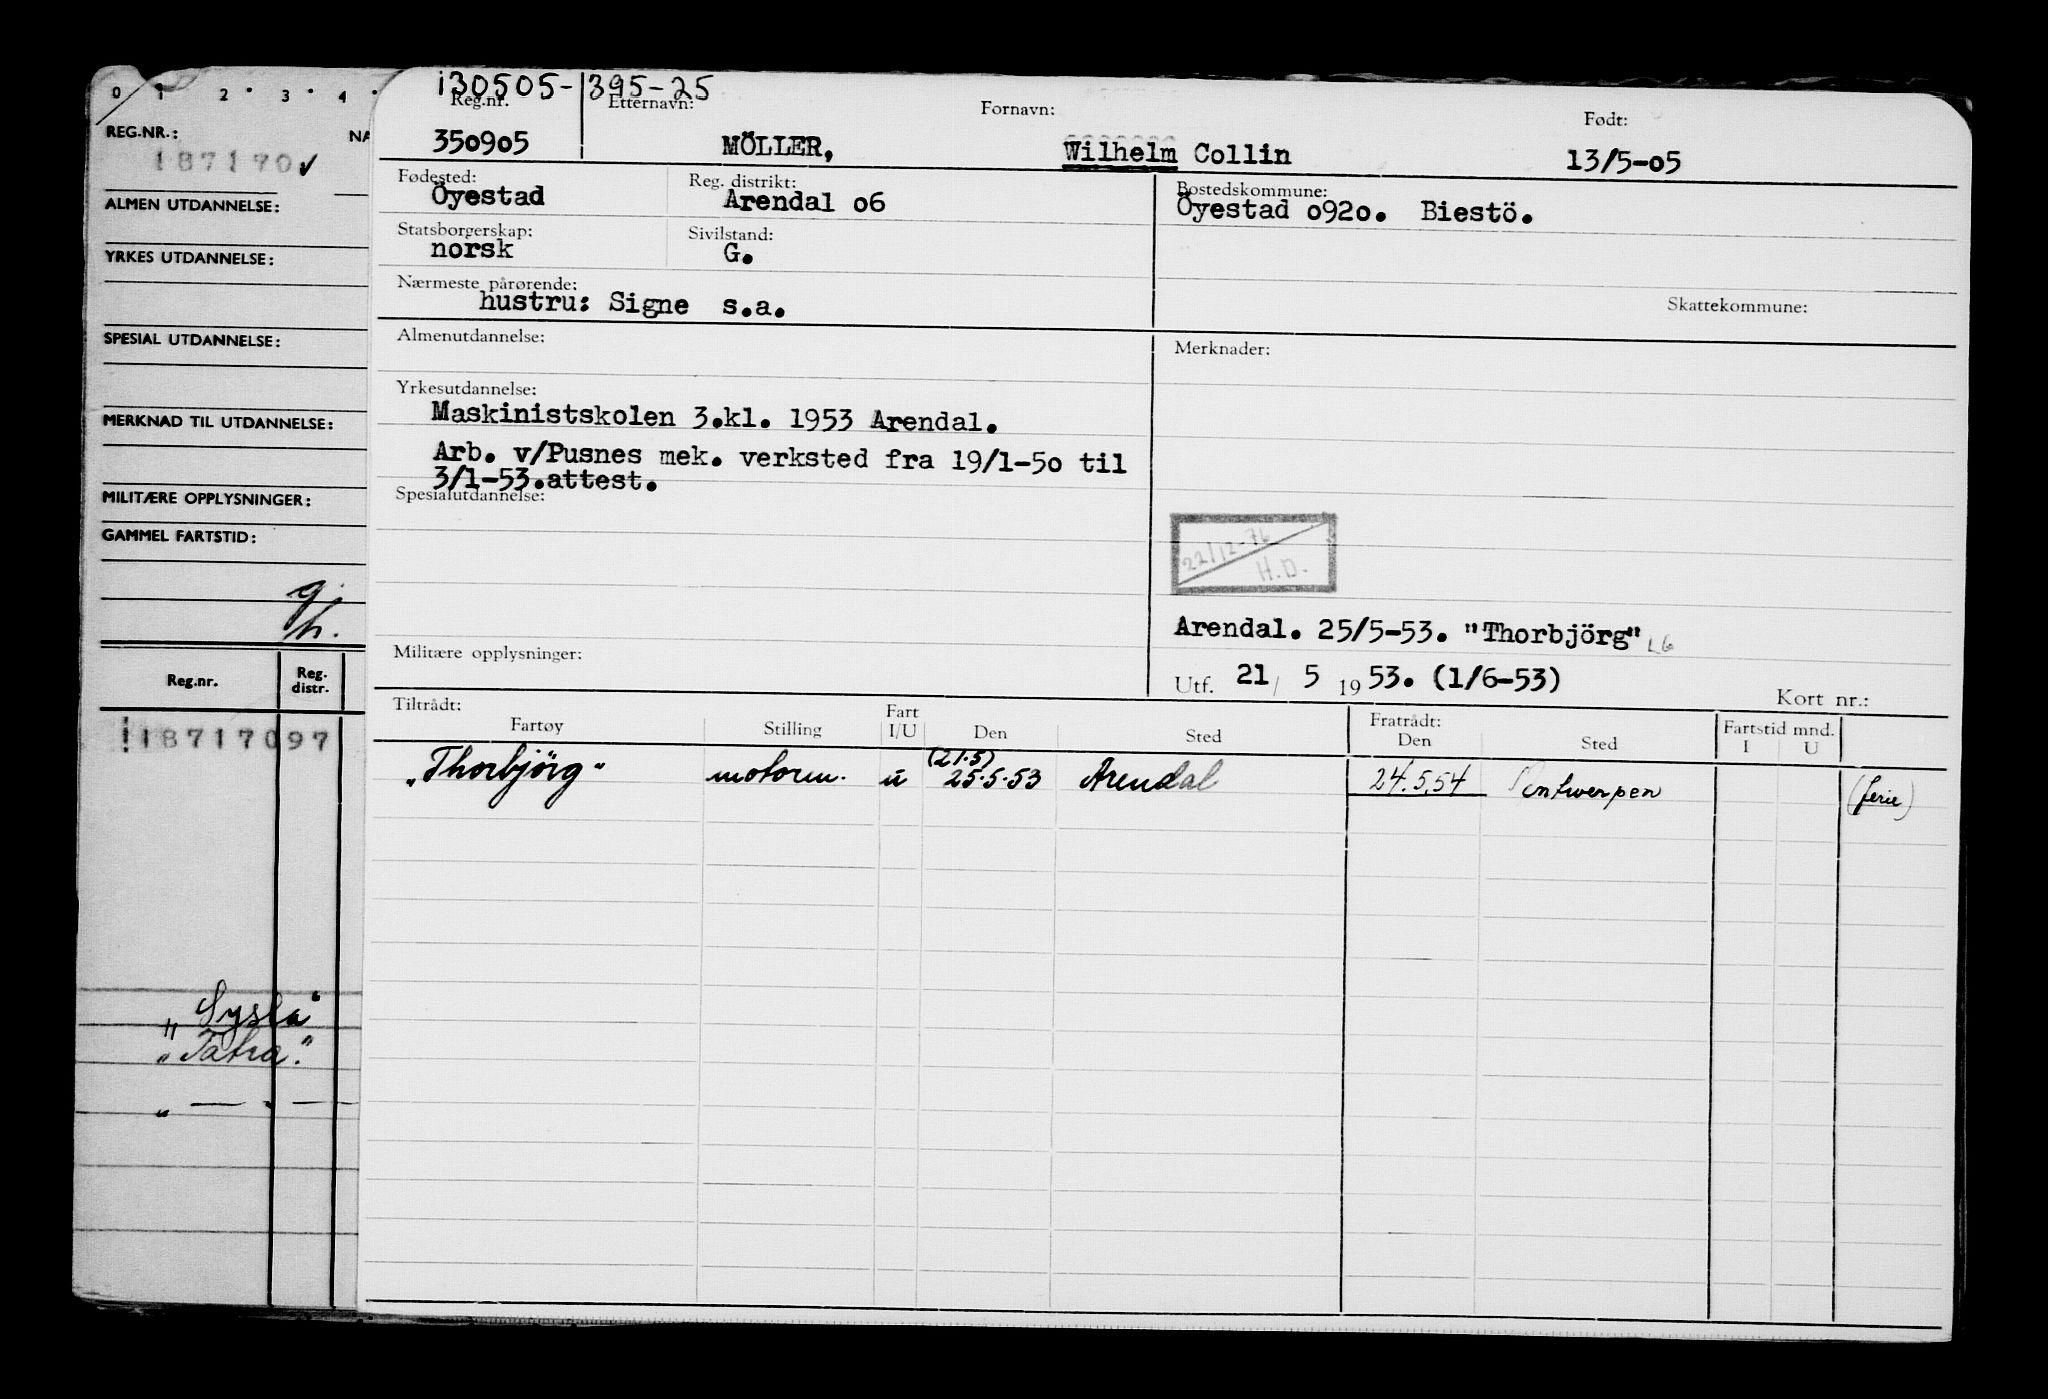 0 1 2 · 3 · 4 ·
REG.NR.:
187170 ✓
ALMEN UTDANNELSE:
YRKES UTDANNELSE:
SPESIAL UTDANNELSE:
MERKNAD TIL UTDANNELSE:
MILITÆRE OPPLYSNINGER:
GAMMEL FARTSTID:
Reg.nr. Reg. distr.
18717097
„Sysla"
„Tatra."
„ — " —
130505-395-25
Reg.nr. Etternavn: Fornavn: Født:
350905 MÖLLER, Wilhelm Collin 13/5-05
Fødested: Reg. distrikt: Bostedskommune:
Öyestad Arendal o6 Öyestad o92o. Biestö.
Statsborgerskap: Sivilstand:
norsk G.
Nærmeste pårørende: Skattekommune:
hustru: Signe s.a.
Almenutdannelse: Merknader:
Yrkesutdannelse:
Maskinistskolen 3.kl. 1953 Arendal.
Arb. v/Pusnes mek. verksted fra 19/1-5o til
3/1-53.attest.
Spesialutdannelse:
22/12-76
H.D.
Arendal. 25/5-53. "Thorbjörg"
Militære opplysninger:
Utf. 21/ 5 1953. (1/6-53)
Kort nr.:
Tiltrådt: Fratrådt: Fartstid mnd.
Fartøy Stilling Fart I/U Den Sted Den Sted I U
(21.5)
„Thorbjörg" motorm. u 25.5.53 Arendal 24.5.54 Antwerpen (ferie)